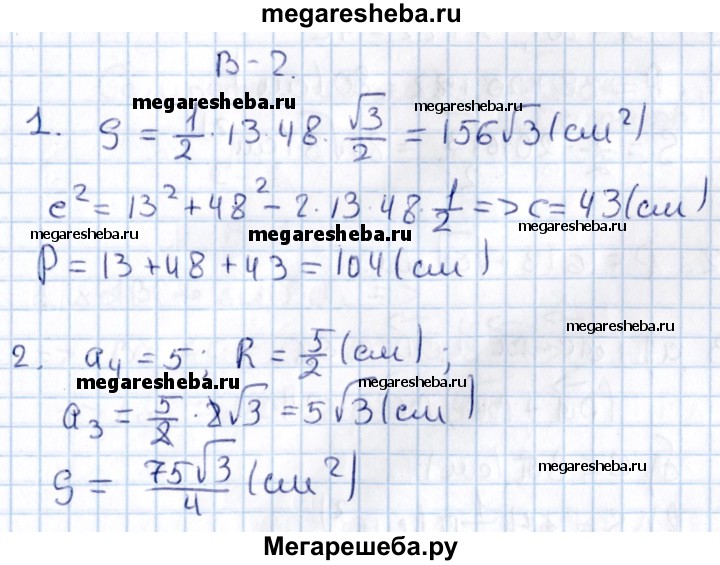 megaresheba.ru
В-2.
megaresheba.ru
megaresheba.ru
1. S = 1/2 · 13 · 48 · √3/2 = 156√3 (см²)
c² = 13² + 48² - 2 · 13 · 48 · 1/2 => c = 43 (см)
megaresheba.ru
megaresheba.ru
megaresheba.ru
P = 13 + 48 + 43 = 104 (см)
megaresheba.ru
2. a₄ = 5; R = 5/2 (см);
megaresheba.ru
megaresheba.ru
a₃ = 5/2 · 2√3 = 5√3 (см)
S = 75√3/4 (см²)
megaresheba.ru
Мегарешеба.ру